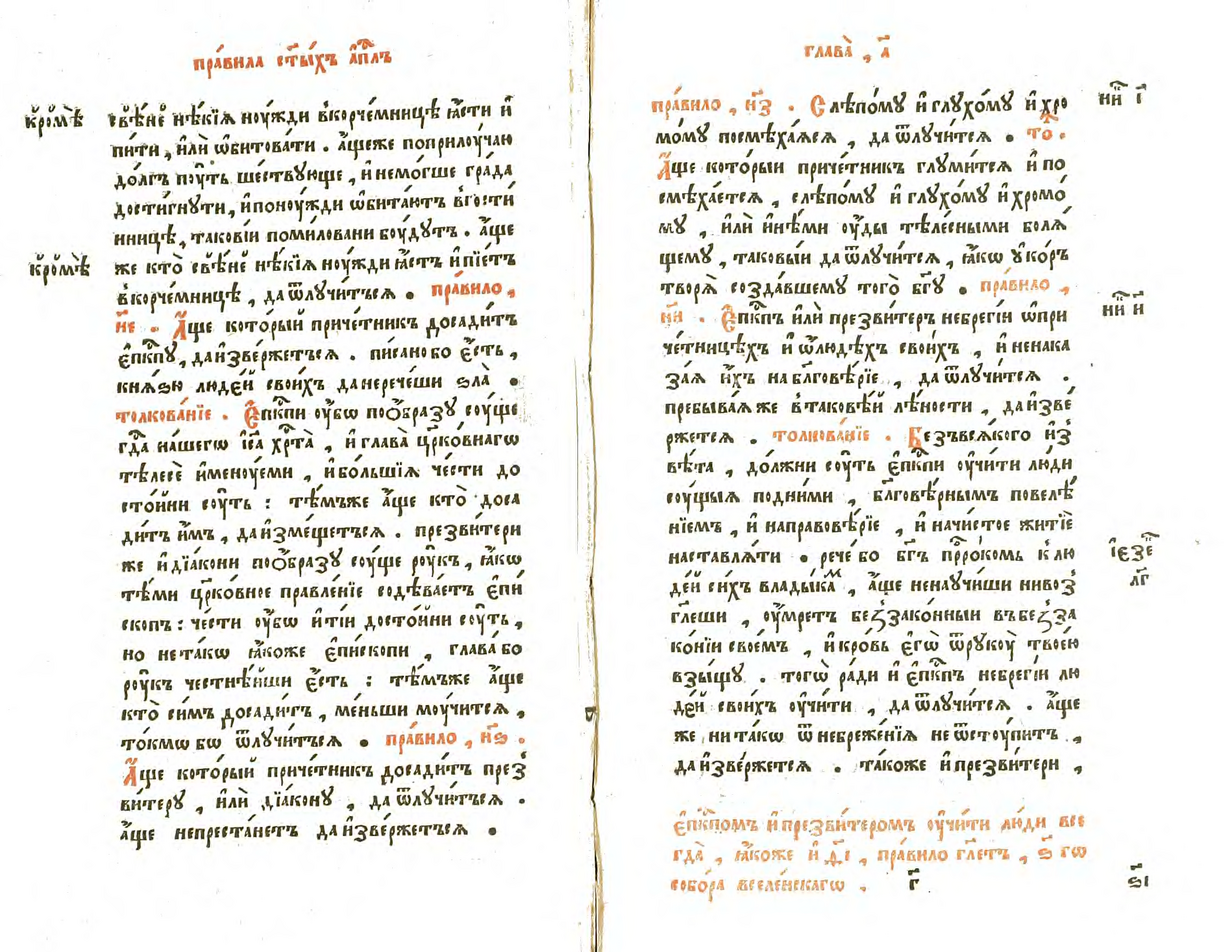 пра́вила ст҃ы́хъ а҆пⷭ҇лъ
кро́мѣ
свѣ́не нѣ́кїѧ ноу́жди вкорче́мницѣ ꙗ҆́сти и҆
пи́ти, и҆лѝ ѡ҆битова́ти . а҆́щеже поприлоу́чаю
до́лгъ поу́ть ше́ствующе , и҆немо́гше гра́да
дости́гнути , и҆поноу́жди ѡ҆бита́ютъ вго́сти
нницѣ , такові́и поми́ловани боу́дутъ . а҆́ще
кро́мѣ
же кто̀ свѣ́не нѣ́кїѧ ноу́жди ꙗ҆́стъ и҆пїе́тъ
вкорче́мницѣ , да ѿлучи́тьсѧ . пра́вило ,
н҃е . А҆́ще кото́рый приче́тникъ досади́тъ
є҆пⷭ҇кпу , да и҆зве́ржетьсѧ . пи́сано бо є҆́сть ,
кнѧ́ѕю люде́й свои́хъ да нерече́ши ѕла̀ .
толкова́нїе . Е҆пⷭ҇кпи оу҆́бѡ поѻ҆́бразу соу́ще
гдⷭ҇а на́шегѡ і҆с҃а хрⷭ҇та̀ , и҆ глава̀ цр҃ко́внагѡ
тѣлесѐ и҆мену́еми , и҆ бо́льшїѧ че́сти до
сто́йни соу́ть : тѣ́мъже а҆́ще кто̀ доса
ди́тъ и҆̀мъ , да и҆зме́щетьсѧ . презви́тери
же и҆ дїа́кони поѻ҆́бразу соу́ще роу́къ , ꙗ҆́кѡ
тѣ́ми цр҃ко́вное правле́нїе содѣ́ваетъ є҆пи́
скопъ : че́сти оу҆́бѡ и҆ ті́и досто́йни соу́ть ,
но не та́кѡ ꙗ҆́коже є҆пи́скопи , глава́ бо
роу́къ честнѣ́йши є҆́сть : тѣ́мъже а҆́ще
кто̀ си́мъ досади́тъ , ме́ньши моу́читсѧ ,
то́кмѡ бѡ ѿлучи́тьсѧ . пра́вило , н҃ѕ .
А҆́ще кото́рый приче́тникъ досади́тъ през̾
ви́теру , и҆лѝ дїа́кону , да ѿлучи́тьсѧ .
а҆́ще непреста́нетъ да и҆зве́ржетьсѧ .
глава̀ , а҃
пра́вило , н҃з . Слѣпо́му и҆ глухо́му и҆ хро
мо́му посмѣха́ѧсѧ , да ѿлучи́тсѧ . то́ .
А҆́ще кото́рыи приче́тникъ глуми́тсѧ и҆ по
смѣха́етсѧ , слѣпо́му и҆ глухо́му и҆ хромо́
му , и҆лѝ и҆нѣ́ми оу҆́ды тѣле́сными болѧ́
щему , таковы́и да ѿлучи́тсѧ , ꙗ҆́кѡ укоръ
творѧ̀ созда́вшему того̀ бг҃у . пра́вило ,
н҃и . Е҆пⷭ҇кпъ и҆лѝ презви́теръ небреги́и ѡ҆при
че́тницѣхъ и҆ ѡ҆лю́дѣхъ свои́хъ , и҆ ненака
за́ѧ и҆́хъ на бл҃говѣ́рїе , да ѿлучи́тсѧ .
пребыва́ѧже втаковѣ́й лѣ́ности , да и҆зве́
ржетсѧ . толкова́нїе . Безъвсѧ́кого и҆з̾
вѣ́та , до́лжни соу́ть є҆пⷭ҇кпи оу҆чи́ти лю́ди
соу́щыѧ подни́ми , бл҃говѣ́рнымъ повелѣ́
нїемъ , и҆ направовѣ́рїе , и҆ начи́стое житїѐ
наставлѧ́ти . рече́ бо бг҃ъ прⷪ҇рокомъ клю
і҆езе
л҃г
де́й си́хъ влады́камъ , а҆́ще ненаучи́ши нивоз̾
гл҃еши , оу҆́мретъ беззако́нныи въбезза
ко́нїи свое́мъ , и҆ кро́вь є҆гѡ̀ ѿрукоу̀ твоею̀
взыщу̀ . тогѡ̀ ра́ди и҆ є҆пⷭ҇кпъ небреги́и лю
де́й свои́хъ оу҆чи́ти , да ѿлучи́тсѧ . а҆́ще
же ни та́кѡ ѿнебреже́нїѧ не ѿстоу́питъ ,
да и҆зве́ржетсѧ . та́коже и҆ презви́тери ,
є҆пⷭ҇кпомъ и҆ презви́теромъ оу҆чи́ти лю́ди все
гда̀ , ꙗ҆́коже и҆ д҃і , пра́вило гл҃етъ , ѕ҃ гѡ
собо́ра вселе́нскагѡ .
г҃
ѕ҃і